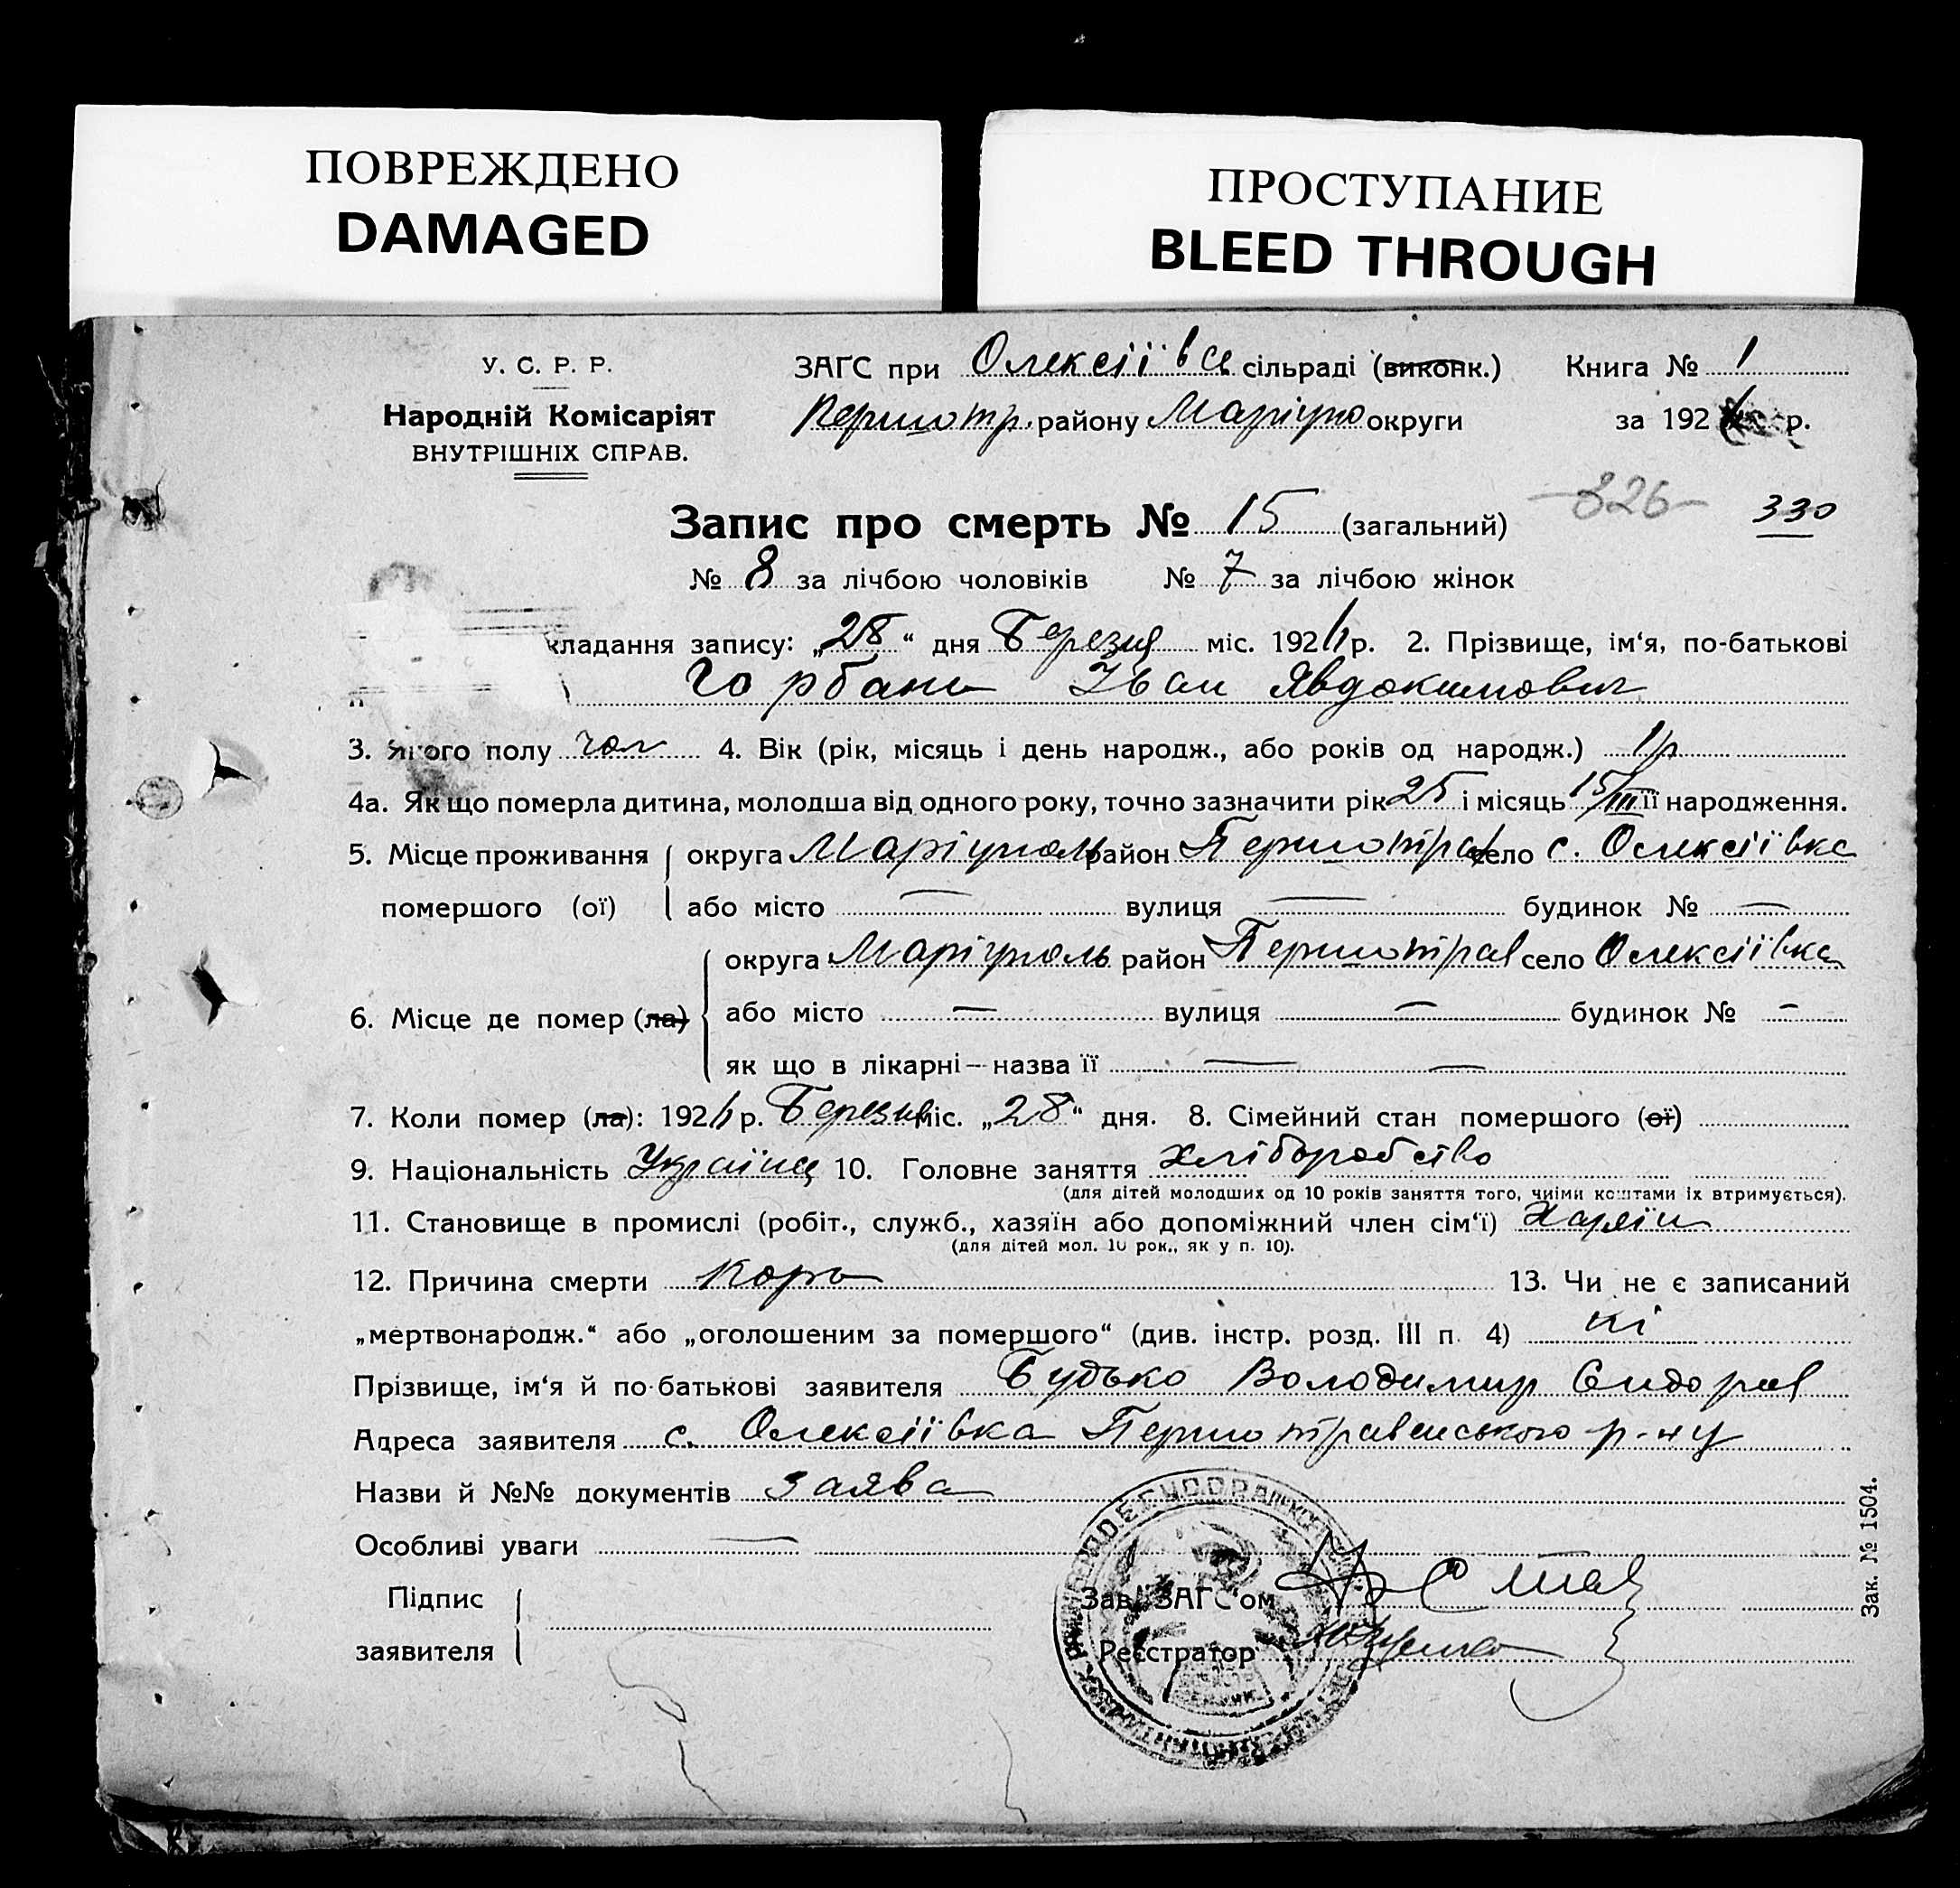 ПОВРЕЖДЕНО
DAMAGED
ПРОСТУПАНИЕ
BLEED THROUGH
У. С. Р. Р.
Народній Комісаріят
ВНУТРІШНІХ СПРАВ.
ЗАГС при Олексіївсь сільраді (виконк.) Книга № 1
Першотр. району Маріупо округи за 192 р.
326 330
Запис про смерть № 15 (загальний)
№ 8 за лічбою чоловіків № 7 за лічбою жінок
кладання запису: „28“ дня Березня міс. 192 р. 2. Прізвище, ім‘я, по-батькові
Горбань Іван Явдокимович
3. Якого полу чол 4. Вік (рік, місяць і день народж., або років од народж.) 1 р
4а. Як що померла дитина, молодша від одного року, точно зазначити рік 25 і місяць 15/III її народження.
5. Місце проживання округа Маріуполь район Першотрав село с. Олексіївка
помершого (ої) або місто — вулиця — будинок № —
округа Маріуполь район Першотрав село Олексіївка
6. Місце де помер (ла) або місто — вулиця — будинок № -
як що в лікарні — назва її — —
7. Коли помер (ла): 192 р. Березня міс. „28“ дня. 8. Сімейний стан помершого (ої)
9. Національність Українц 10. Головне заняття хліборобство
(для дітей молодших од 10 років заняття того, чиїми коштами їх втримується).
11. Становище в промислі (робіт., служб., хазяїн або допоміжний член сім‘ї) Хазяїн
(для дітей мол. 10 рок., як у п. 10).
12. Причина смерти Корь 13. Чи не є записаний
„мертвонародж.“ або „оголошеним за помершого“ (див. інстр. розд. III п. 4) ні
Прізвище, ім‘я й по-батькові заявителя Будько Володимир Сидоров
Адреса заявителя с. Олексіївка Першотравенського р-ну
Назви й №№ документів заява
Особливі уваги —
Підпис
заявителя
Зав. ЗАГС‘ом
Реєстратор
Зак. № 1504.